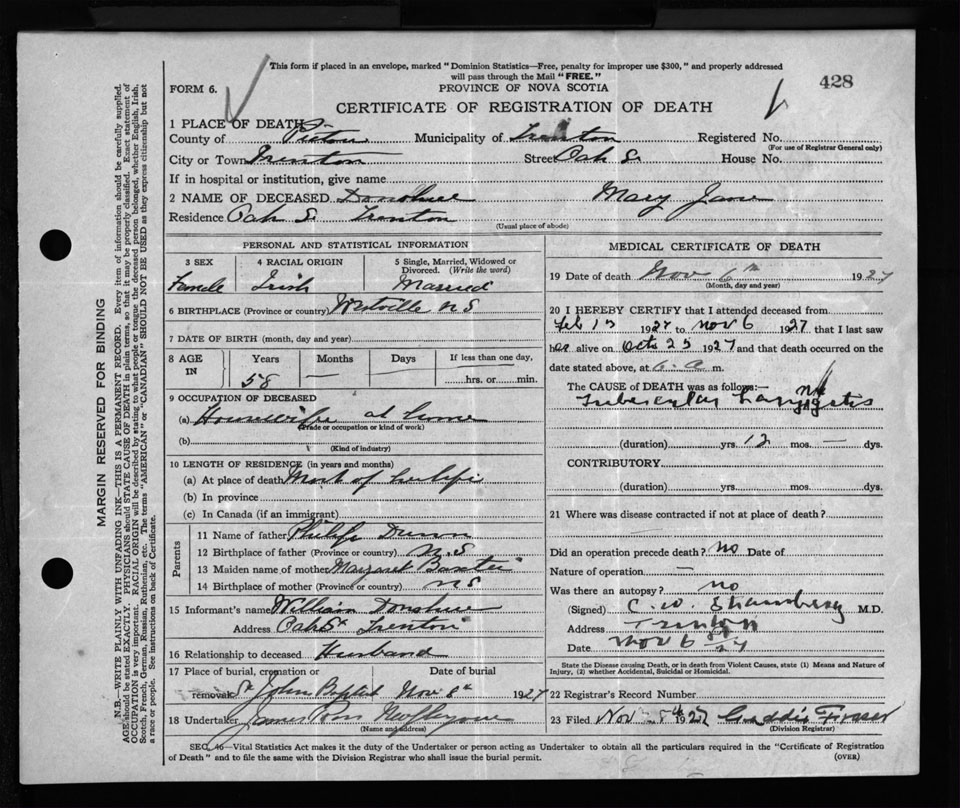 This form if placed in an envelope, marked "Dominion Statistics—Free, penalty for improper use $300," and properly addressed
will pass through the Mail "FREE."
428
FORM 6.
PROVINCE OF NOVA SCOTIA
CERTIFICATE OF REGISTRATION OF DEATH
1 PLACE OF DEATH
County of Pictou Municipality of Trenton Registered No.
(For use of Registrar General only)
City or Town Trenton Street Oak St House No.
If in hospital or institution, give name
2 NAME OF DECEASED Donohue Mary Jane
Residence Oak St Trenton
(Usual place of abode)
PERSONAL AND STATISTICAL INFORMATION
3 SEX 4 RACIAL ORIGIN 5 Single, Married, Widowed or
Divorced. (Write the word)
Female Irish Married
6 BIRTHPLACE (Province or country) Westville N S
7 DATE OF BIRTH (month, day and year)
8 AGE IN Years Months Days If less than one day,
58 — hrs. or min.
9 OCCUPATION OF DECEASED
(a) Housewife at home
(Trade or occupation or kind of work)
(b)
(Kind of industry)
10 LENGTH OF RESIDENCE (in years and months)
(a) At place of death Most of her life
(b) In province
(c) In Canada (if an immigrant)
Parents
11 Name of father Philip Dunn
12 Birthplace of father (Province or country) N.S
13 Maiden name of mother Margaret
14 Birthplace of mother (Province or country) N S
15 Informant's name William Donohue
Address Oak St Trenton
16 Relationship to deceased Husband
17 Place of burial, cremation or Date of burial
removal St John Baptist Nov 8th 1927
18 Undertaker James Ross New Glasgow
(Name and address)
MEDICAL CERTIFICATE OF DEATH
19 Date of death Nov 6th 1927
(Month, day and year)
20 I HEREBY CERTIFY that I attended deceased from
Feb 13 1927 to Nov 6 1927 that I last saw
her alive on Octo 25 1927 and that death occurred on the
date stated above, at 6. a m.
The CAUSE of DEATH was as follows:—
Tubercular Laryngitis
(duration) yrs. 12 mos. — dys.
CONTRIBUTORY
(duration) yrs. mos. dys.
21 Where was disease contracted if not at place of death?
Did an operation precede death? no Date of
Nature of operation —
Was there an autopsy? no
(Signed) C. W. M.D.
Address Trenton
Date Nov 6th 27
State the Disease causing Death, or in death from Violent Causes, state (1) Means and Nature of
Injury, (2) whether Accidental, Suicidal or Homicidal.
22 Registrar's Record Number
23 Filed Nov 1927 Fraser
(Division Registrar)
SEC. 46—Vital Statistics Act makes it the duty of the Undertaker or person acting as Undertaker to obtain all the particulars required in the "Certificate of Registration
of Death" and to file the same with the Division Registrar who shall issue the burial permit. (OVER)
MARGIN RESERVED FOR BINDING
N.B. WRITE PLAINLY WITH UNFADING INK—THIS IS A PERMANENT RECORD. Every item of information should be carefully supplied.
AGE should be stated EXACTLY. PHYSICIANS should STATE CAUSE OF DEATH in plain terms, so that it may be properly classified. Exact statement of
OCCUPATION is very important. RACIAL ORIGIN will be described by stating to what people or tongue the deceased person belonged, whether English, Irish,
Scotch, French, German, Russian, Ruthenian, etc. The terms "AMERICAN" or "CANADIAN" SHOULD NOT BE USED as they express citizenship but not
a race or people. See instructions on back of Certificate.